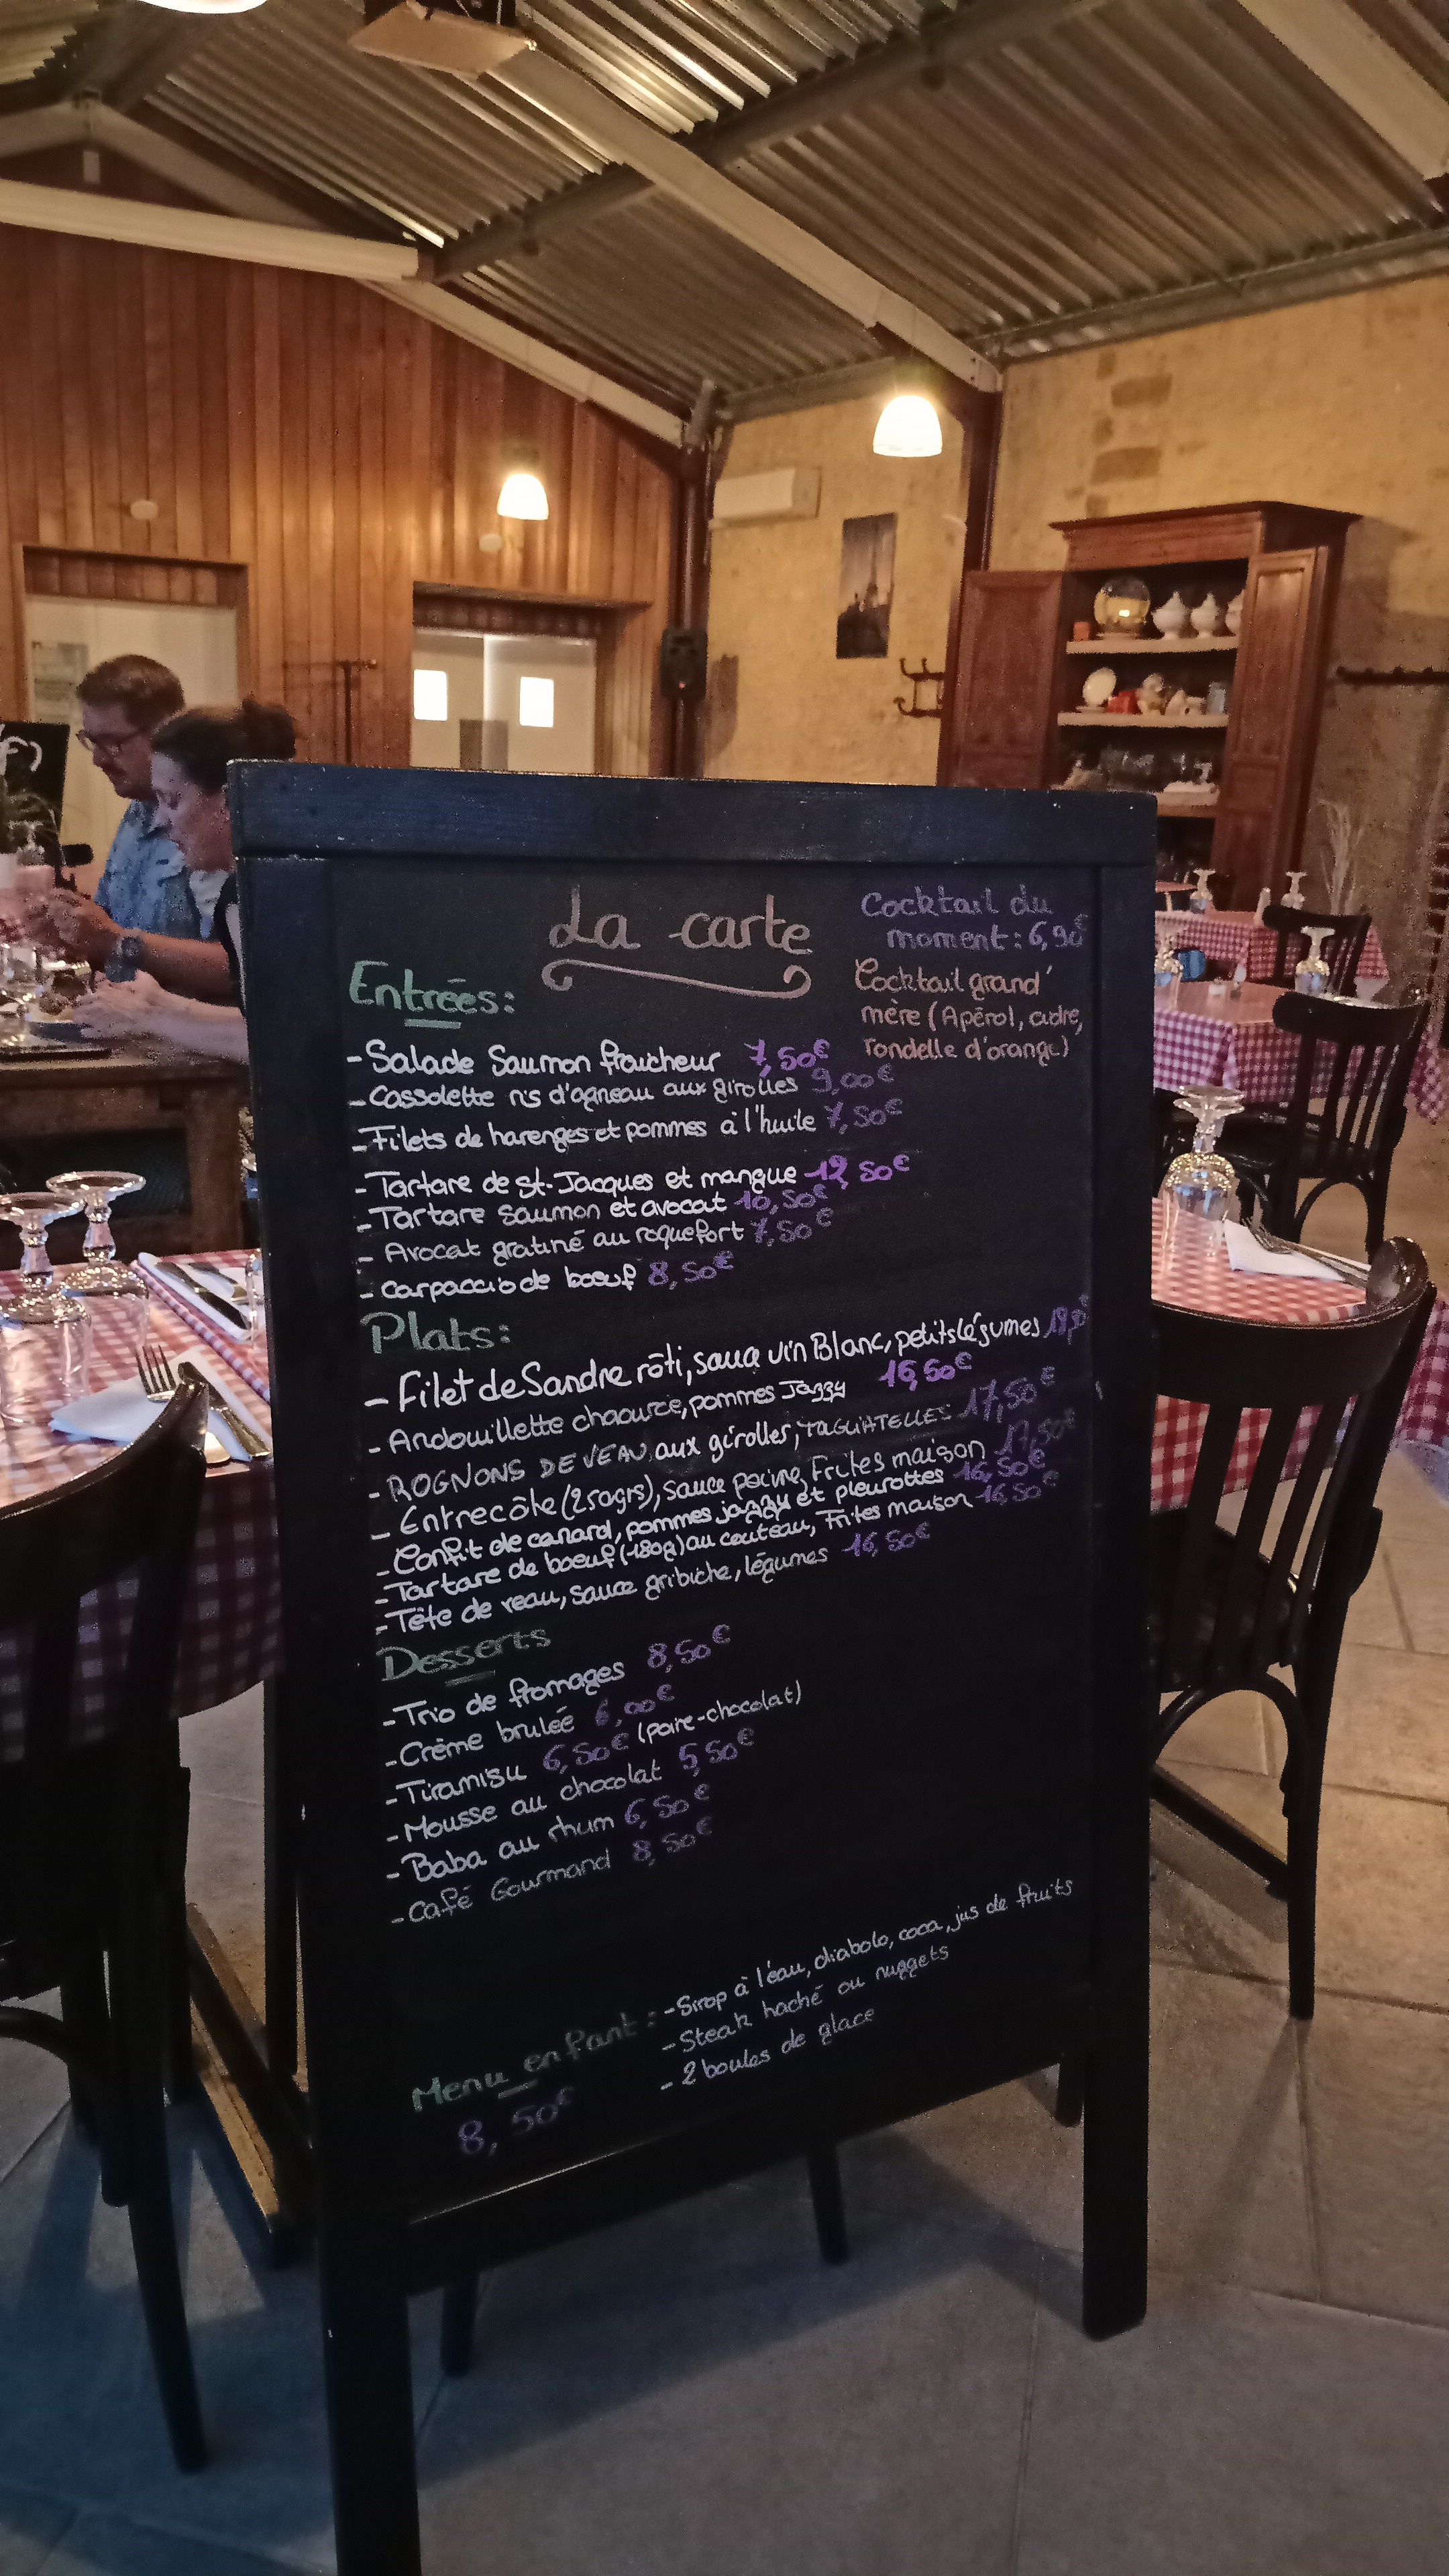 La carte
Cocktail du
moment : 6,90€
Cocktail grand'
mère (Apérol, cidre,
rondelle d'orange)
Entrées :
- Salade Saumon fraicheur 7,50€
- Cassolette ris d'agneau aux girolles 9,00€
- Filets de harenges et pommes à l'huile 7,50€
- Tartare de st-Jacques et mangue 12,50€
- Tartare saumon et avocat 10,50€
- Avocat gratiné au roquefort 7,50€
- Carpaccio de boeuf 8,50€
Plats :
- Filet de Sandre rôti, sauce vin Blanc, petits légumes
- Andouillette chaource, pommes Jazzy 16,50€
- ROGNONS DE VEAU aux girolles, TAGLIATELLES 17,50€
- Entrecôte (250grs), sauce poivre, Frites maison 17,50€
- Confit de canard, pommes jazzy et pleurottes 16,50€
- Tartare de boeuf (180g) au couteau, Frites maison 16,50€
- Tête de veau, sauce gribiche, légumes 16,50€
Desserts
- Trio de fromages 8,50€
- Crème brulée 6,00€
- Tiramisu 6,50€ (poire-chocolat)
- Mousse au chocolat 5,50€
- Baba au rhum 6,50€
- Café Gourmand 8,50€
Menu enfant : - Sirop à l'eau, diabolo, coca, jus de fruits
- Steak haché ou nuggets
- 2 boules de glace
8,50€